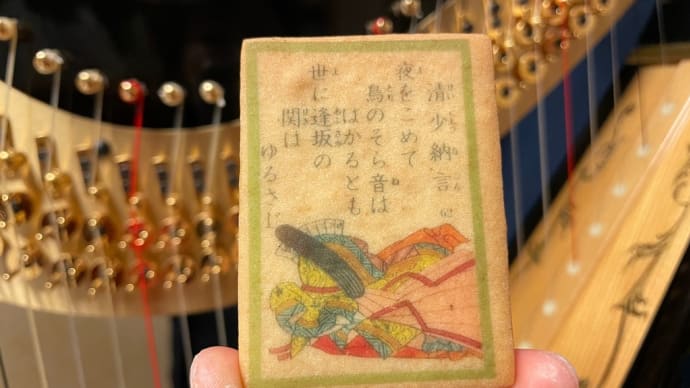 清少納言 62
夜をこめて
鳥のそら音は
はかるとも
世に逢坂の
関は
ゆるさじ